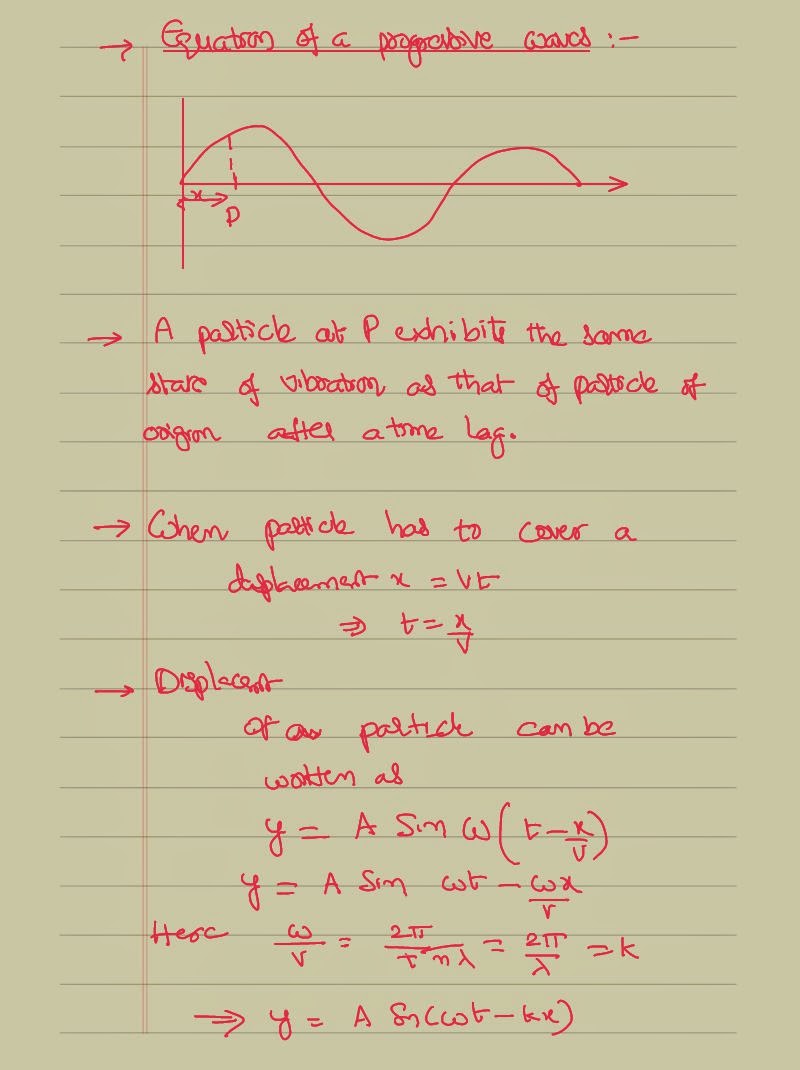 → Equation of a progressive waves :-
x
P
→ A particle at P exhibits the same
state of vibration as that of particle of
origin after a time lag.
→ When particle has to cover a
displacement x = vt
⇒ t = x/v
→ Displacent
of a particle can be
written as
y = A Sin ω(t - x/v)
y = A Sin ωt - ωx/v
Here ω/v = 2π/T n λ = 2π/λ = k
⇒ y = A Sin(ωt - kx)